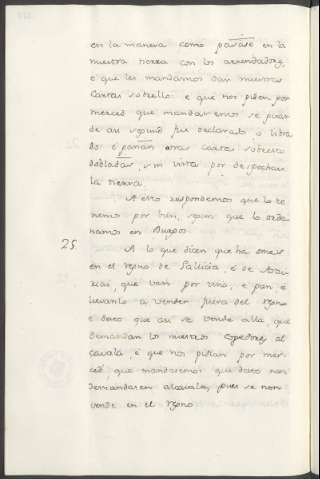 en la manera como pasase en la
nuestra tierra con los arrendadores,
e que les mandamos dar nuestras
cartas sobrello: e que nos piden por
merced que mandaremos se guar
de asi segund fue declarado o libra
do: e parian otras cartas sobresto
dobladas, sin vista por despechar
la tierra.
A esto respondemos que lo te
nemos por bien, segun que lo orde
namos en Burgos.
25 A lo que dicen que ha omes
en el regno de Gallicia, e de Astu
rias, que van por vino, e pan e
lievanlo a vender fuera del regno
e desto que asi se vende alla, que
demandan los nuestros cogedores al
cavala, e que nos pidian por mer
ced que mandaremos que desto non
demandaren alcavala, pues se non
vende en el regno